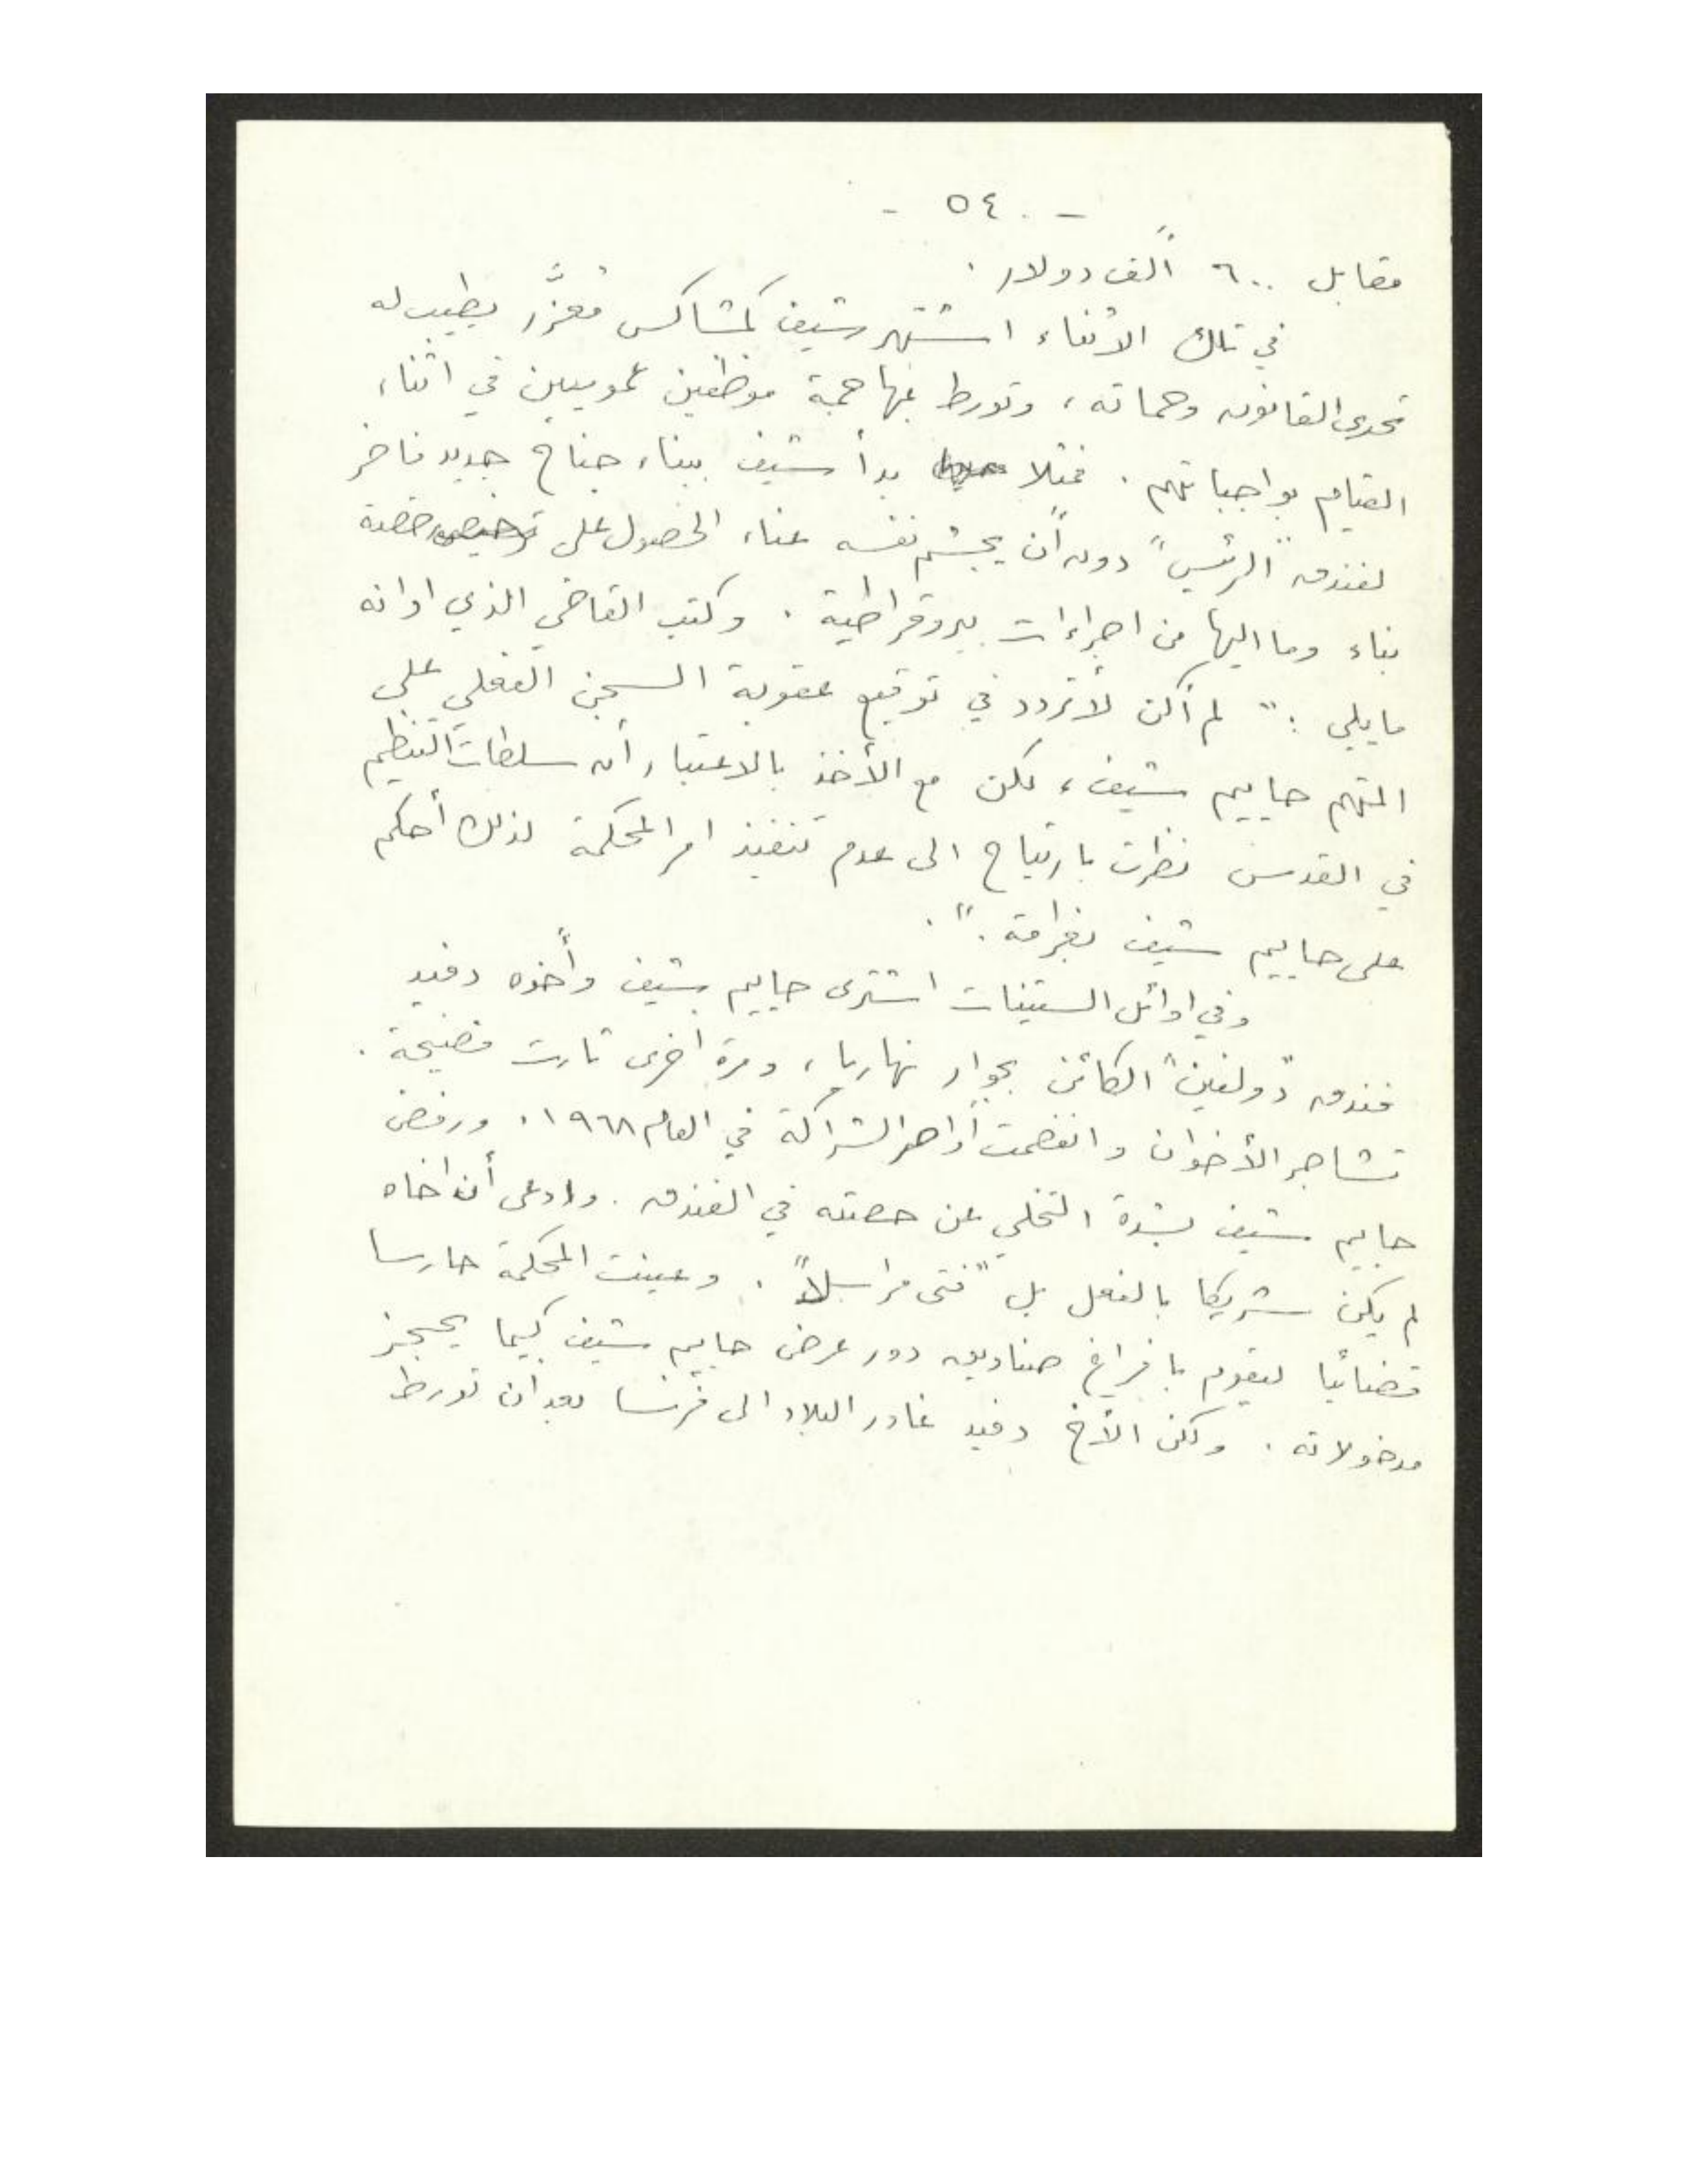 - ٥٤ -
مقابل ٦٠٠ ألف دولار .
في تلك الاثناء اشتهر شيف كمشاكس معزَّر يطيب له
تحدي القانون وحماته ، وتورط بمهاجمة موظفين عموميين في اثناء
القيام بواجباتهم . فمثلا بدأ شيف ببناء جناح جديد فاخر
لفندق "الرئيس" دون أن يجشم نفسه عناء الحصول على رخصة
بناء وما اليها من اجراءات بيروقراطية . وكتب القاضي الذي ادانه
ما يلي : " لم أكن لأتردد في توقيع عقوبة السجن الفعلي على
المتهم حاييم شيف ، لكن مع الأخذ بالاعتبار أن سلطات التنظيم
في القدس نظرت بارتياح الى عدم تنفيذ امر المحكمة لذلك أحكم
على حاييم شيف بغرامة . " .
وفي اوائل الستينات اشترى حاييم شيف وأخوه دفيد
فندق "دولفين" الكائن بجوار نهاريا ، ومرة اخرى ثارت فضيحة .
تشاجر الأخوان وانفصمت أواصر الشراكة في العام ١٩٦٨ . ورفض
حاييم شيف بشدة التخلي عن حصته في الفندق . وادعى أن اخاه
لم يكن شريكا بالفعل بل "فتى مراسلاً" . وعينت المحكمة حارسا
قضائيا ليقوم بافراغ صناديق دور عرض حاييم شيف كيما يحجز
مدخولاته . ولكن الأخ دفيد غادر البلاد الى فرنسا بعد ان تورط